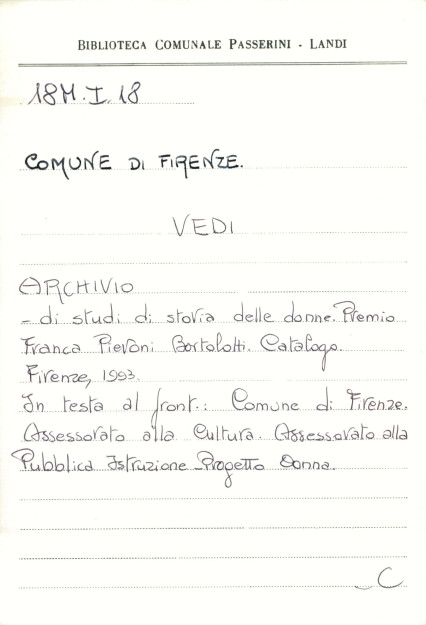 BIBLIOTECA COMUNALE PASSERINI - LANDI
18M.I.18
COMUNE DI FIRENZE.
VEDI
ARCHIVIO
- di studi di storia delle donne. Premio
Franca Pieroni Bortolotti. Catalogo.
Firenze, 1993.
In testa al front.: Comune di Firenze.
Assessorato alla Cultura. Assessorato alla
Pubblica Istruzione - Progetto Donna.
_C